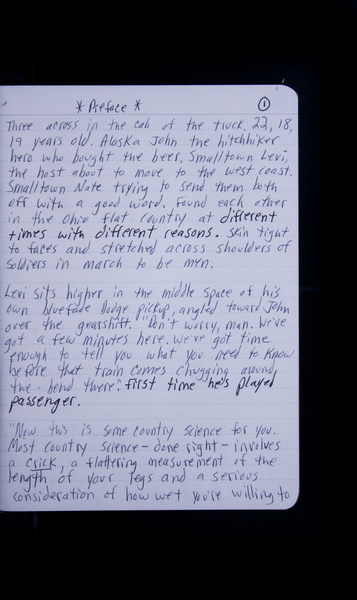 * Preface *
1
Three across in the cab of the truck. 22, 18,
19 years old. Alaska John the hitchhiker
hero who bought the beer. Smalltown Levi,
the host about to move to the west coast.
Smalltown Nate trying to send them both
off with a good word. Found each other
in the Ohio flat country at different
times with different reasons. Skin tight
to faces and stretched across shoulders of
soldiers in march to be men.
Levi sits higher in the middle space of his
own bluefade Dodge pickup, angled toward John
over the gearshift. "Don't worry, man. We've
got a few minutes here. We've got time
enough to tell you what you need to know
before that train comes chugging around
the bend there". First time he's played
passenger.
"Now this is some country science for you.
Most country science - done right - involves
a crick, a flattering measurement of the
length of your legs and a serious
consideration of how wet you're willing to